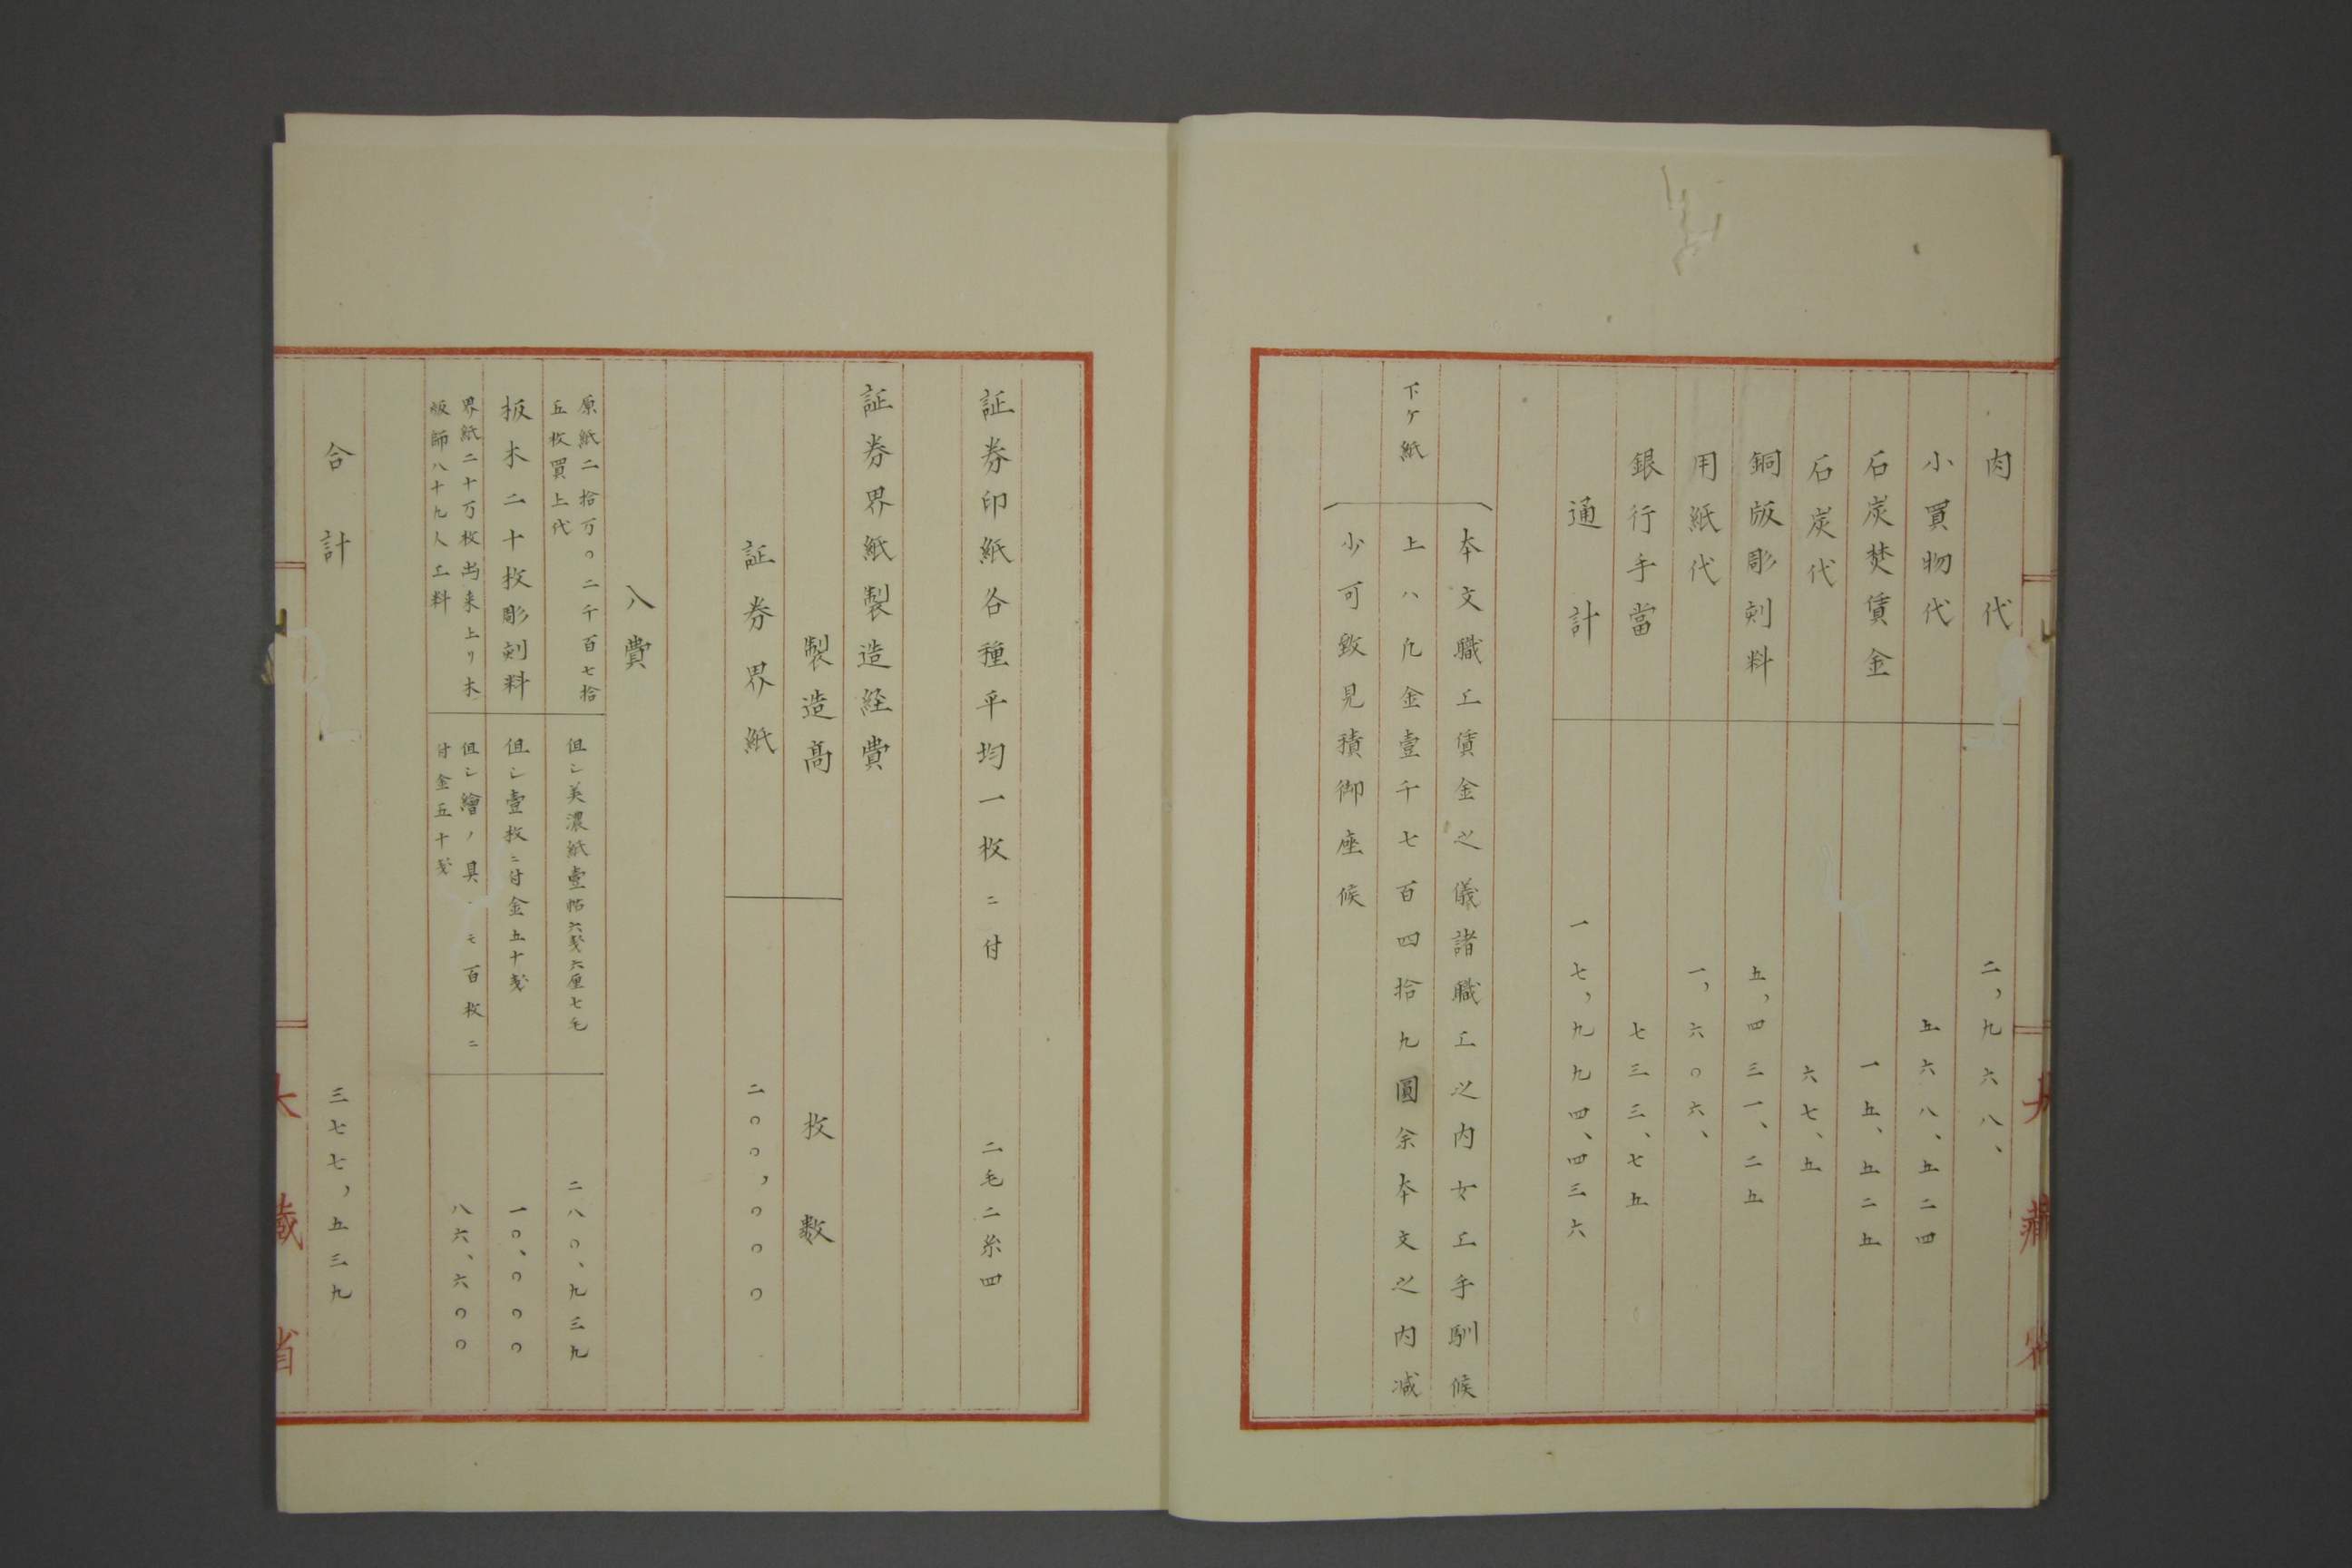 肉代 二,九六八、
小買物代 五六八、五二四
石炭焚賃金 一五、五二五
石炭代 六七、五
銅版彫刻料 五,四三一、二五
用紙代 一,六〇六、
銀行手當 七三三、七五
通計 一七,九九四、四三六
本文職工賃金之儀諸職工之内女工手馴候
下ケ紙 上ハ凡金壹千七百四拾九圓余本文之内減
少可致見積御座候
証券印紙各種平均一枚ニ付 二毛二糸四
証券界紙製造経費
製造高 枚数
証券界紙 二〇〇,〇〇〇
入費
原紙二拾万〇二千百七拾
五枚買上代 但シ美濃紙壹帖六戔六厘七毛 二八〇、九三九
板木二十枚彫刻料 但シ壹枚ニ付金五十戔 一〇、〇〇〇
界紙二十万枚出来上リ木
版師八十九人工料 但シ繪ノ具トモ百枚ニ
付金五十戔 八六、六〇〇
合計 三七七,五三九
大藏省
大藏省